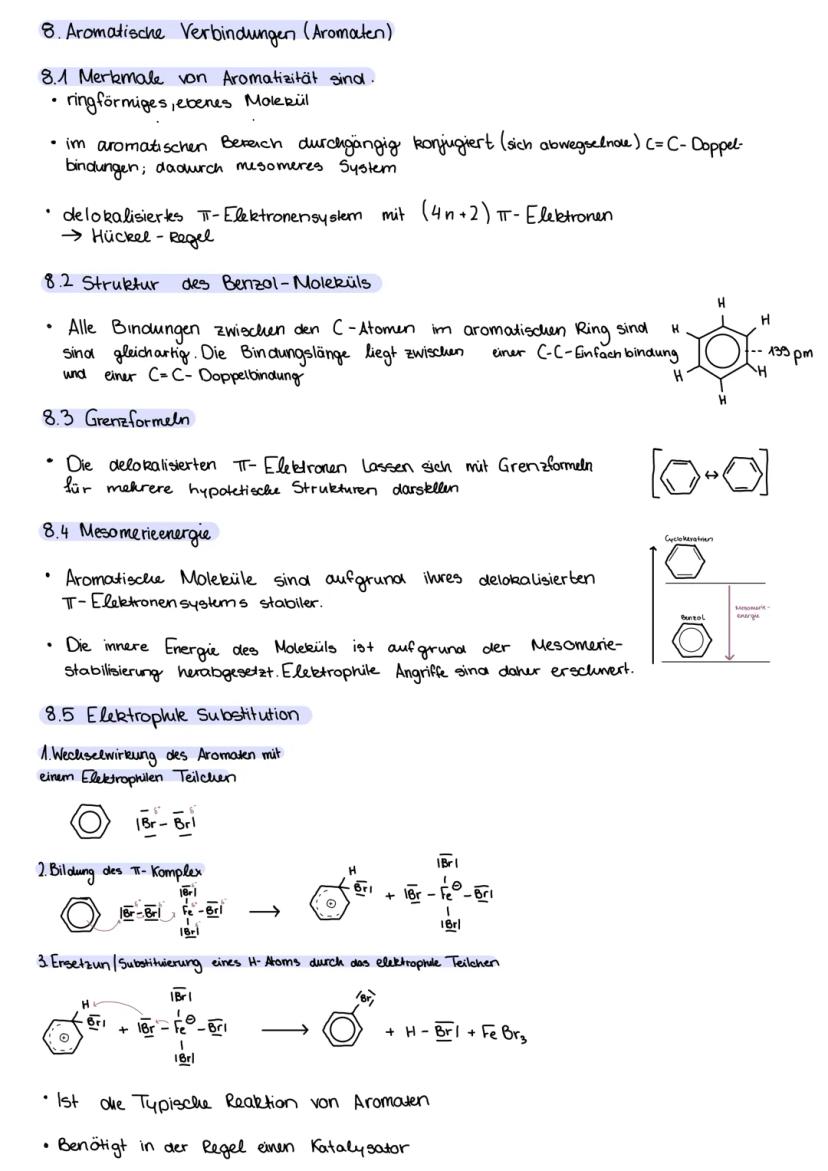 8. Aromatische Verbindungen (Aromaten)
8.1 Merkmale von Aromatizität sind.
• ringförmiges, ebenes Molekül
• im aromatischen Bereich durchgängig konjugiert (sich abwegselnde) C=C- Doppel-
bindungen; dadurch mesomeres System
• delokalisiertes π-Elektronensystem mit (4n+2) π- Elektronen
→ Hückel - Regel
8.2 Struktur des Benzol-Moleküls
• Alle Bindungen zwischen den C-Atomen im aromatischen Ring sind
sind gleichartig. Die Bindungslänge liegt zwischen einer C-C-Einfachbindung
und einer C=C- Doppelbindung
H
H
H
139 pm
H
H
H
8.3 Grenzformeln
• Die delokalisierten π- Elektronen lassen sich mit Grenzformeln
für mehrere hypotetische Strukturen darstellen
8.4 Mesomerieenergie
• Aromatische Moleküle sind aufgrund ihres delokalisierten
π-Elektronensystems stabiler.
• Die innere Energie des Moleküls ist aufgrund der Mesomerie-
stabilisierung herabgesetzt. Elektrophile Angriffe sind daher erschwert.
Benzol
Mesomerie-
energie
8.5 Elektrophile Substitution
1. Wechselwirkung des Aromaten mit
einem Elektrophilen Teilchen
|Br - Br|
2. Bildung des π- Komplex
|Br|
|Br-Br| Fe -Br|
|Br|
→
H
Br|
+
|Br|
|Br - Fe⊖ - Br|
|Br|
3. Ersetzun/Substituierung eines H- Atoms durch das elektrophile Teilchen
H
Br|
+
|Br|
|Br - Fe⊖ - Br|
|Br|
→
|Br|
+ H - Br| + FeBr₃
• Ist die Typische Reaktion von Aromaten
• Benötigt in der Regel einen Katalysator